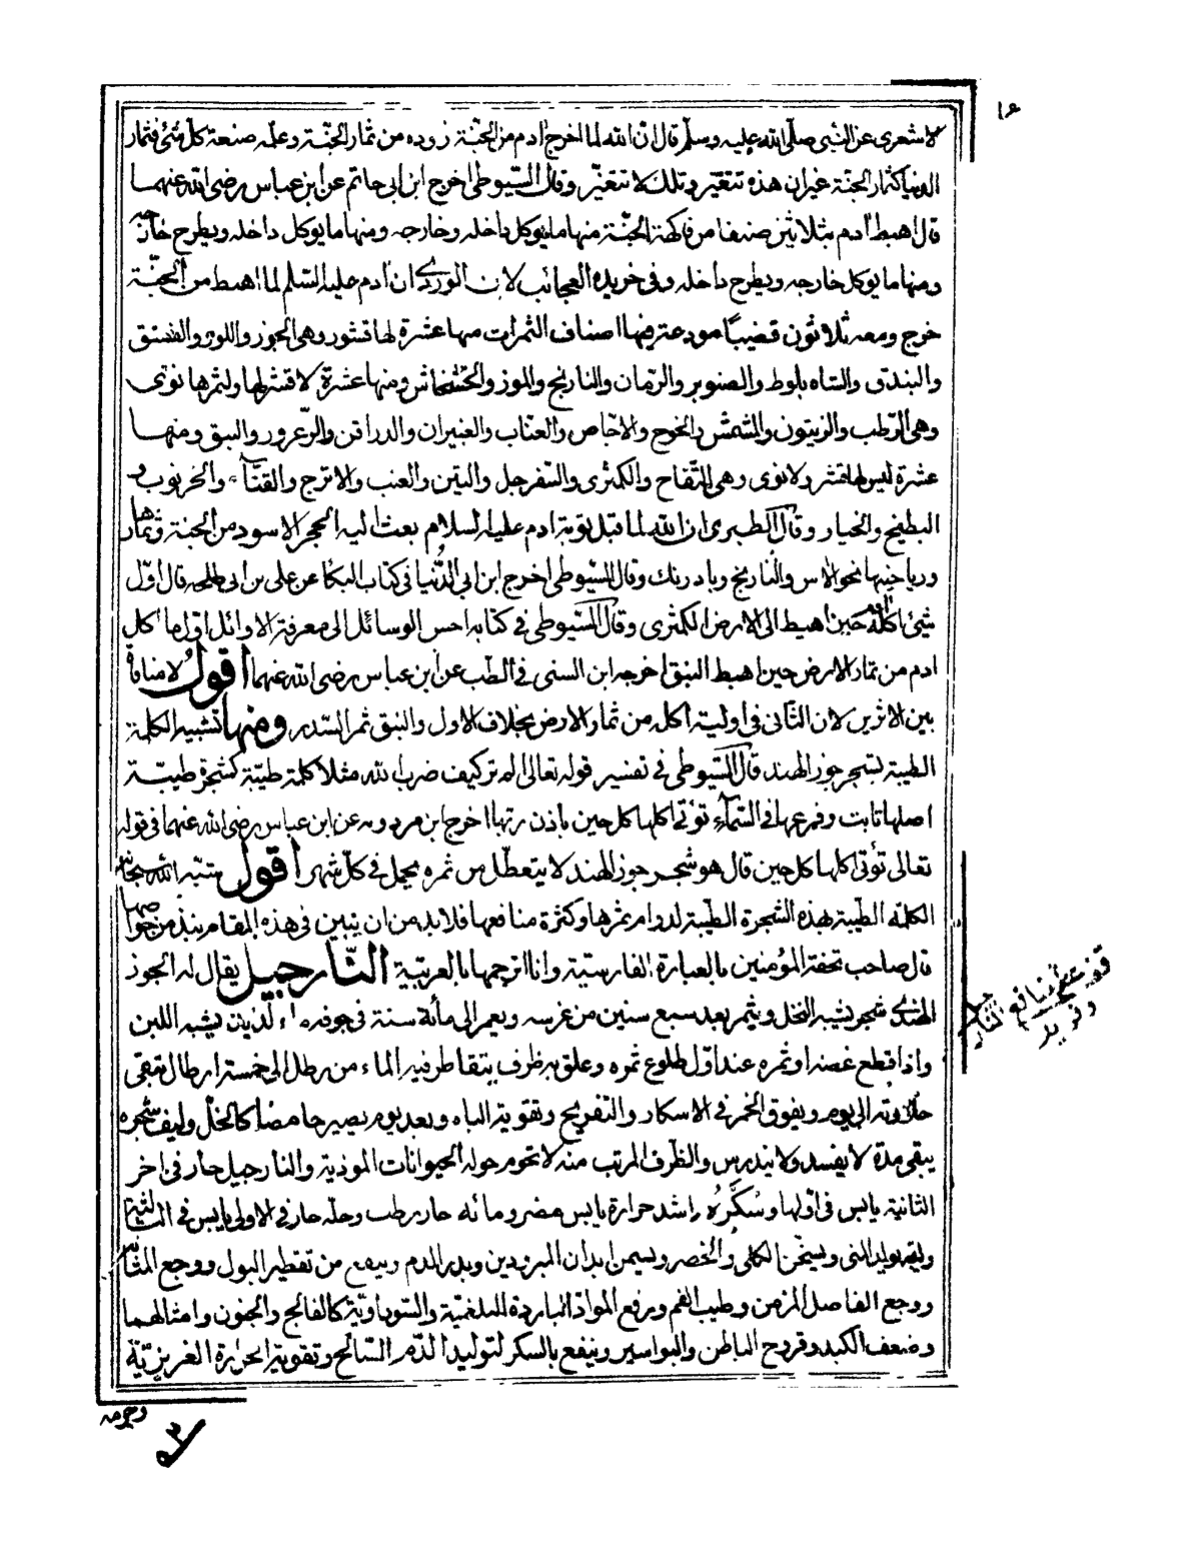 لاشعرى عن النبى صلى الله عليه وسلم قال ان الله لما اخرج ادم من الجنة زوده من ثمار الجنة وعلمه صنعة كل شئ فثمار
الدنيا كثمار الجنة غير ان هذه تتغير وتلك لا تتغير وقال السيوطى اخرج ابن ابى حاتم عن ابن عباس رضى الله عنهما
قال اهبط ادم بثلاثين صنفا من فاكهة الجنة منها ما يوكل داخله وخارجه ومنها ما يوكل داخله ويطرح خارجه
ومنها ما يوكل خارجه ويطرح داخله وفى خريدة العجائب لابن الوردى ان ادم عليه السلم لما اهبط من الجنة
خرج ومعه ثلاثون قضيبًا مودعة فيها اصناف الثمرات منها عشرة لها قشور وهى الجوز واللوز والفستق
والبندق والشاه بلوط والصنوبر والرمان والنارنج والموز والخشخاش ومنها عشرة لا قشر لها ولثمرها نوى
وهى الرطب والزيتون والمشمش والخوخ والاجاص والعناب والغبيران والدراقن والزعرور والنبق ومنها
عشرة ليس لها قشر ولا نوى وهى التفاح والكمثرى والسفرجل والتين والعنب والاترج والقثآء والخرنوب و
البطيخ والخيار وقال الطبرى ان الله لما قبل توبة ادم عليه السلام بعث اليه الحجر الاسود من الجنة وثمارها
ورياحينها نحو الاس والنارنج وبادرنك وقال السيوطى اخرج ابن ابى الدُنيا فى كتاب البكا عن على بن ابى طلحه قال اول
شئ اكله ادم حين اهبط الى الارض الكمثرى وقال السيوطى فى كتابه احسن الوسائل الى معرفة الاوائل اول ما اكل
ادم من ثمار الارض حين اهبط النبق اخرجه ابن السنى فى الطب عن ابن عباس رضى الله عنهما اقول لا منافاة
بين الاثرين لان الثانى فى اولية اكله من ثمار الارض بخلاف الاول والنبق ثمر السدر ومنها تشبيه الكلمة
الطيبة بشجر جوز الهند قال السيوطى فى تفسير قوله تعالى الم تر كيف ضرب الله مثلا كلمة طيبة كشجرة طيبة
اصلها ثابت وفرعها فى السمآء تؤتى اكلها كل حين باذن ربها اخرج ابن مردويه عن ابن عباس رضى الله عنهما فى قوله
تعالى تؤتى اكلها كل حين قال هو شجر جوز الهند لا يتعطل من ثمره يحمل فى كل شهر اقول شبّه الله سبحانه
الكلمة الطيبة بهذه الشجرة الطيبة لدوام ثمرها وكثرة منافعها فلابد من ان يتبين فى هذه المقام نبذ من خواصها
قال صاحب تحفة المؤمنين بالعبارة الفارسية وانا اترجمها بالعربية النّارجيل يقال له الجوز
الهندى شجر يشبه النخل ويثمر بعد سبع سنين من غرسه ويعمر الى مائة سنة فى جوفه ماء لذيذ يشبه اللبن
واذا قطع غصنه او ثمره عند اول طلوع ثمره وعلق به ظرف يتقاطر فيه الماء من رطل الى خمسة ارطال تبقى
حلاوته الى يوم ويفوق الخمر فى الاسكار والتفريح وتقوية الباه وبعد يوم يصير حامضا كالخل وليف شجره
يبقى مدة لا يفسد ولا يندرس والظرف المرتب منه لا تحوم حوله الحيوانات الموذية والنارجيل حار فى اخر
الثانية يابس فى اولها وسُكَّرُه اشد حرارة يابس مضر ومائه حار رطب وخله حار فى الاولى يابس فى الثانية
ولبه يولد المنى ويسخن الكلى والخصر ويسمن ابدان المبرودين ويدر الدم وينفع من تقطير البول ووجع المثانة
ووجع المفاصل المزمن وطيب الفم ورفع المواد الباردة البلغمية والسوداوية كالفالج والجنون وامثالهما
وضعف الكبد وقروح الباطن والبواسير وينفع بالسكر لتوليد الدم الصالح وتقوية الحرارة الغريزية
وجرمه